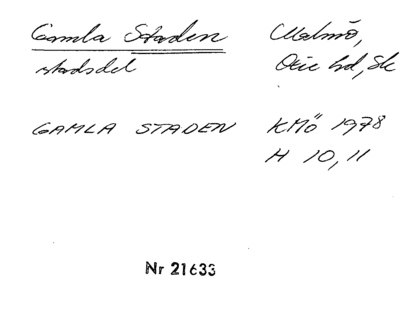 Gamla Staden Malmö,
stadsdel Oxie hd, Sk
GAMLA STADEN KMÖ 1978
H 10, 11
Nr 21633